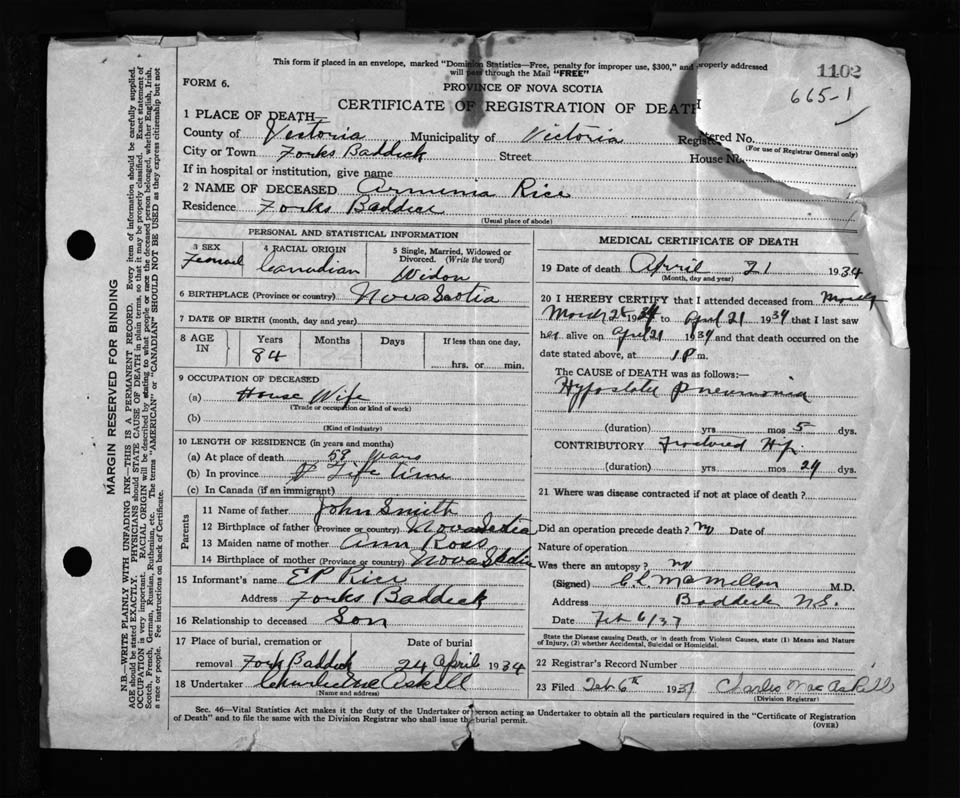 This form if placed in an envelope, marked "Dominion Statistics—Free, penalty for improper use, $300," and properly addressed
will pass through the Mail "FREE"
1102
665-1
FORM 6.
PROVINCE OF NOVA SCOTIA
CERTIFICATE OF REGISTRATION OF DEATH
1 PLACE OF DEATH—
County of Victoria Municipality of Victoria Registered No.
(For use of Registrar General only)
City or Town Forks Baddeck Street House No.
If in hospital or institution, give name
2 NAME OF DECEASED Armenia Rice
Residence Forks Baddeck
(Usual place of abode)
PERSONAL AND STATISTICAL INFORMATION
3 SEX 4 RACIAL ORIGIN 5 Single, Married, Widowed or Divorced. (Write the word)
Femail Canadian Widow
6 BIRTHPLACE (Province or country) Nova Scotia
7 DATE OF BIRTH (month, day and year)
8 AGE IN Years Months Days If less than one day,
84 hrs. or min.
9 OCCUPATION OF DECEASED
(a) House Wife
(Trade or occupation or kind of work)
(b)
(Kind of industry)
10 LENGTH OF RESIDENCE (in years and months)
(a) At place of death 59 years
(b) In province Life time
(c) In Canada (if an immigrant)
Parents
11 Name of father John Smith
12 Birthplace of father (Province or country) Nova Scotia
13 Maiden name of mother Ann Ross
14 Birthplace of mother (Province or country) Nova Scotia
15 Informant's name E P Rice
Address Forks Baddeck
16 Relationship to deceased Son
17 Place of burial, cremation or Date of burial
removal Fork Baddeck 24 April 1934
18 Undertaker Charlie McAskill
(Name and address)
MEDICAL CERTIFICATE OF DEATH
19 Date of death April 21 1934
(Month, day and year)
20 I HEREBY CERTIFY that I attended deceased from
March 28 1934 to April 21 1934 that I last saw
her alive on April 21 1934 and that death occurred on the
date stated above, at 1 P m.
The CAUSE OF DEATH was as follows:—
Hypostatic pneumonia
(duration) yrs mos 5 dys.
CONTRIBUTORY Fractured Hip
(duration) yrs mos 24 dys.
21 Where was disease contracted if not at place of death?
Did an operation precede death? no Date of
Nature of operation
Was there an autopsy? no
(Signed) C. L. McMillan M.D.
Address Baddeck N.S.
Date Feb 6/37
State the Disease causing Death, or in death from Violent Causes, state (1) Means and Nature
of Injury, (2) whether Accidental, Suicidal or Homicidal.
22 Registrar's Record Number
23 Filed Feb 6th 1937 Charles MacAskill
(Division Registrar)
Sec. 46—Vital Statistics Act makes it the duty of the Undertaker or person acting as Undertaker to obtain all the particulars required in the "Certificate of Registration
of Death" and to file the same with the Division Registrar who shall issue the burial permit.
(OVER)
MARGIN RESERVED FOR BINDING
N.B.—WRITE PLAINLY WITH UNFADING INK—THIS IS A PERMANENT RECORD. Every item of information should be carefully supplied.
AGE should be stated EXACTLY. PHYSICIANS should STATE CAUSE OF DEATH in plain terms, so that it may be properly classified. Exact statement of
OCCUPATION is very important. RACIAL ORIGIN will be described by stating to what people or race the deceased person belonged, whether English, Irish,
Scotch, French, German, Russian, Ruthenian, etc. The terms "AMERICAN" or "CANADIAN" SHOULD NOT BE USED as they express citizenship but not
a race or people. See instructions on back of Certificate.